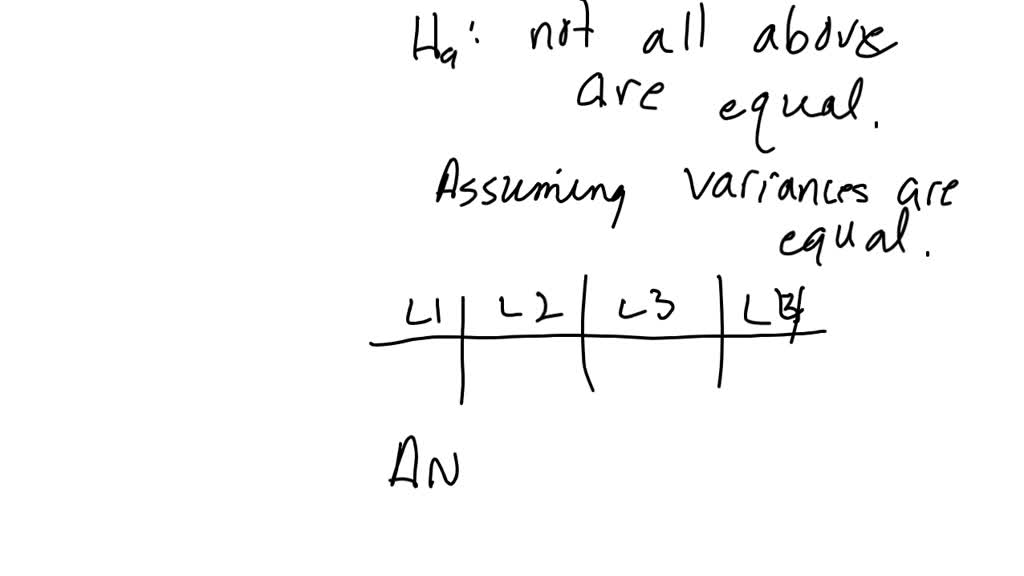 Ha: not all above
are equal.
Assuming variances are
equal.
L1 L2 L3
AN